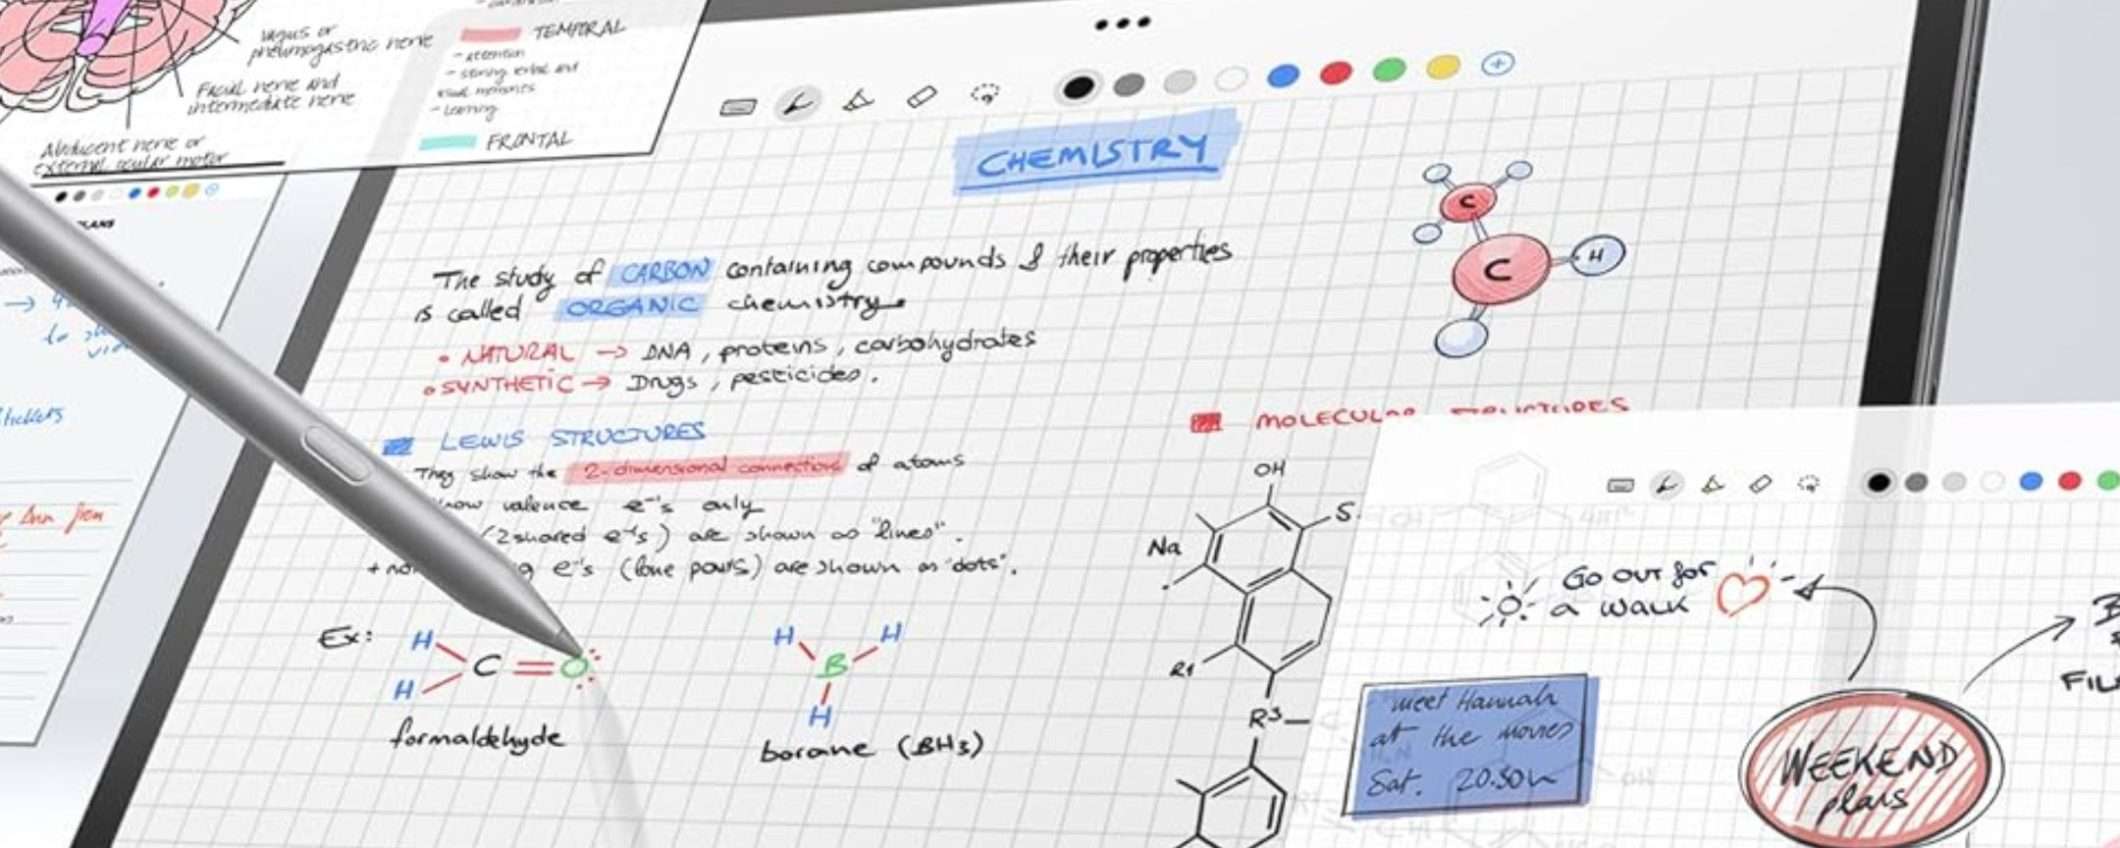 vagus or
pneumogastric nerve
Facial nerve and
intermediate nerve
Abducent nerve or
external ocular motor
TEMPORAL
- attention
- storing verbal and
visual memories
- learning
FRONTAL
CHEMISTRY
The study of CARBON containing compounds & their properties
is called ORGANIC chemistry.
• NATURAL → DNA, proteins, carbohydrates
• SYNTHETIC → Drugs, pesticides.
LEWIS STRUCTURES
They show the 2-dimensional connections of atoms
valence e-'s only
(2 shared e-'s) are shown as "lines".
e-'s (lone pairs) are shown as "dots".
Ex:
H
H
C
O
formaldehyde
H
H
B
H
borane (BH3)
C
C
H
MOLECULAR STRUCTURES
OH
S
Na
R1
R3
Go out for
a walk
meet Hannah
at the movies
Sat. 20.30h
WEEKEND
plans